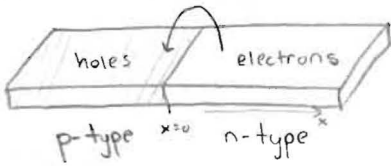 holes electrons
x
p-type x=0 n-type